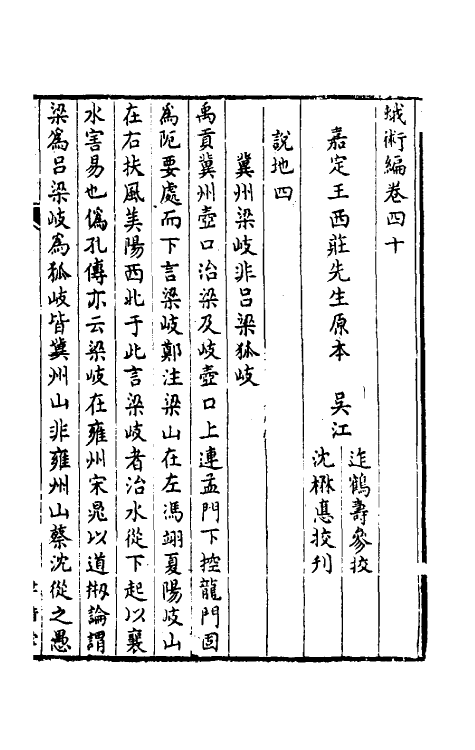 蛾術編卷四十
嘉定王西莊先生原本　吳江
迮鶴壽參挍
沈楙悳挍刋
說地四
冀州梁岐非呂梁狐岐
禹貢冀州壺口治梁及岐壺口上連孟門下控龍門固
爲阨要處而下言梁岐鄭注梁山在左馮翊夏陽岐山
在右扶風美陽西北于此言梁岐者治水從下起以襄
水害易也僞孔傳亦云梁岐在雍州宋晁以道剏論謂
梁爲呂梁岐爲狐岐皆冀州山非雍州山蔡沈從之愚